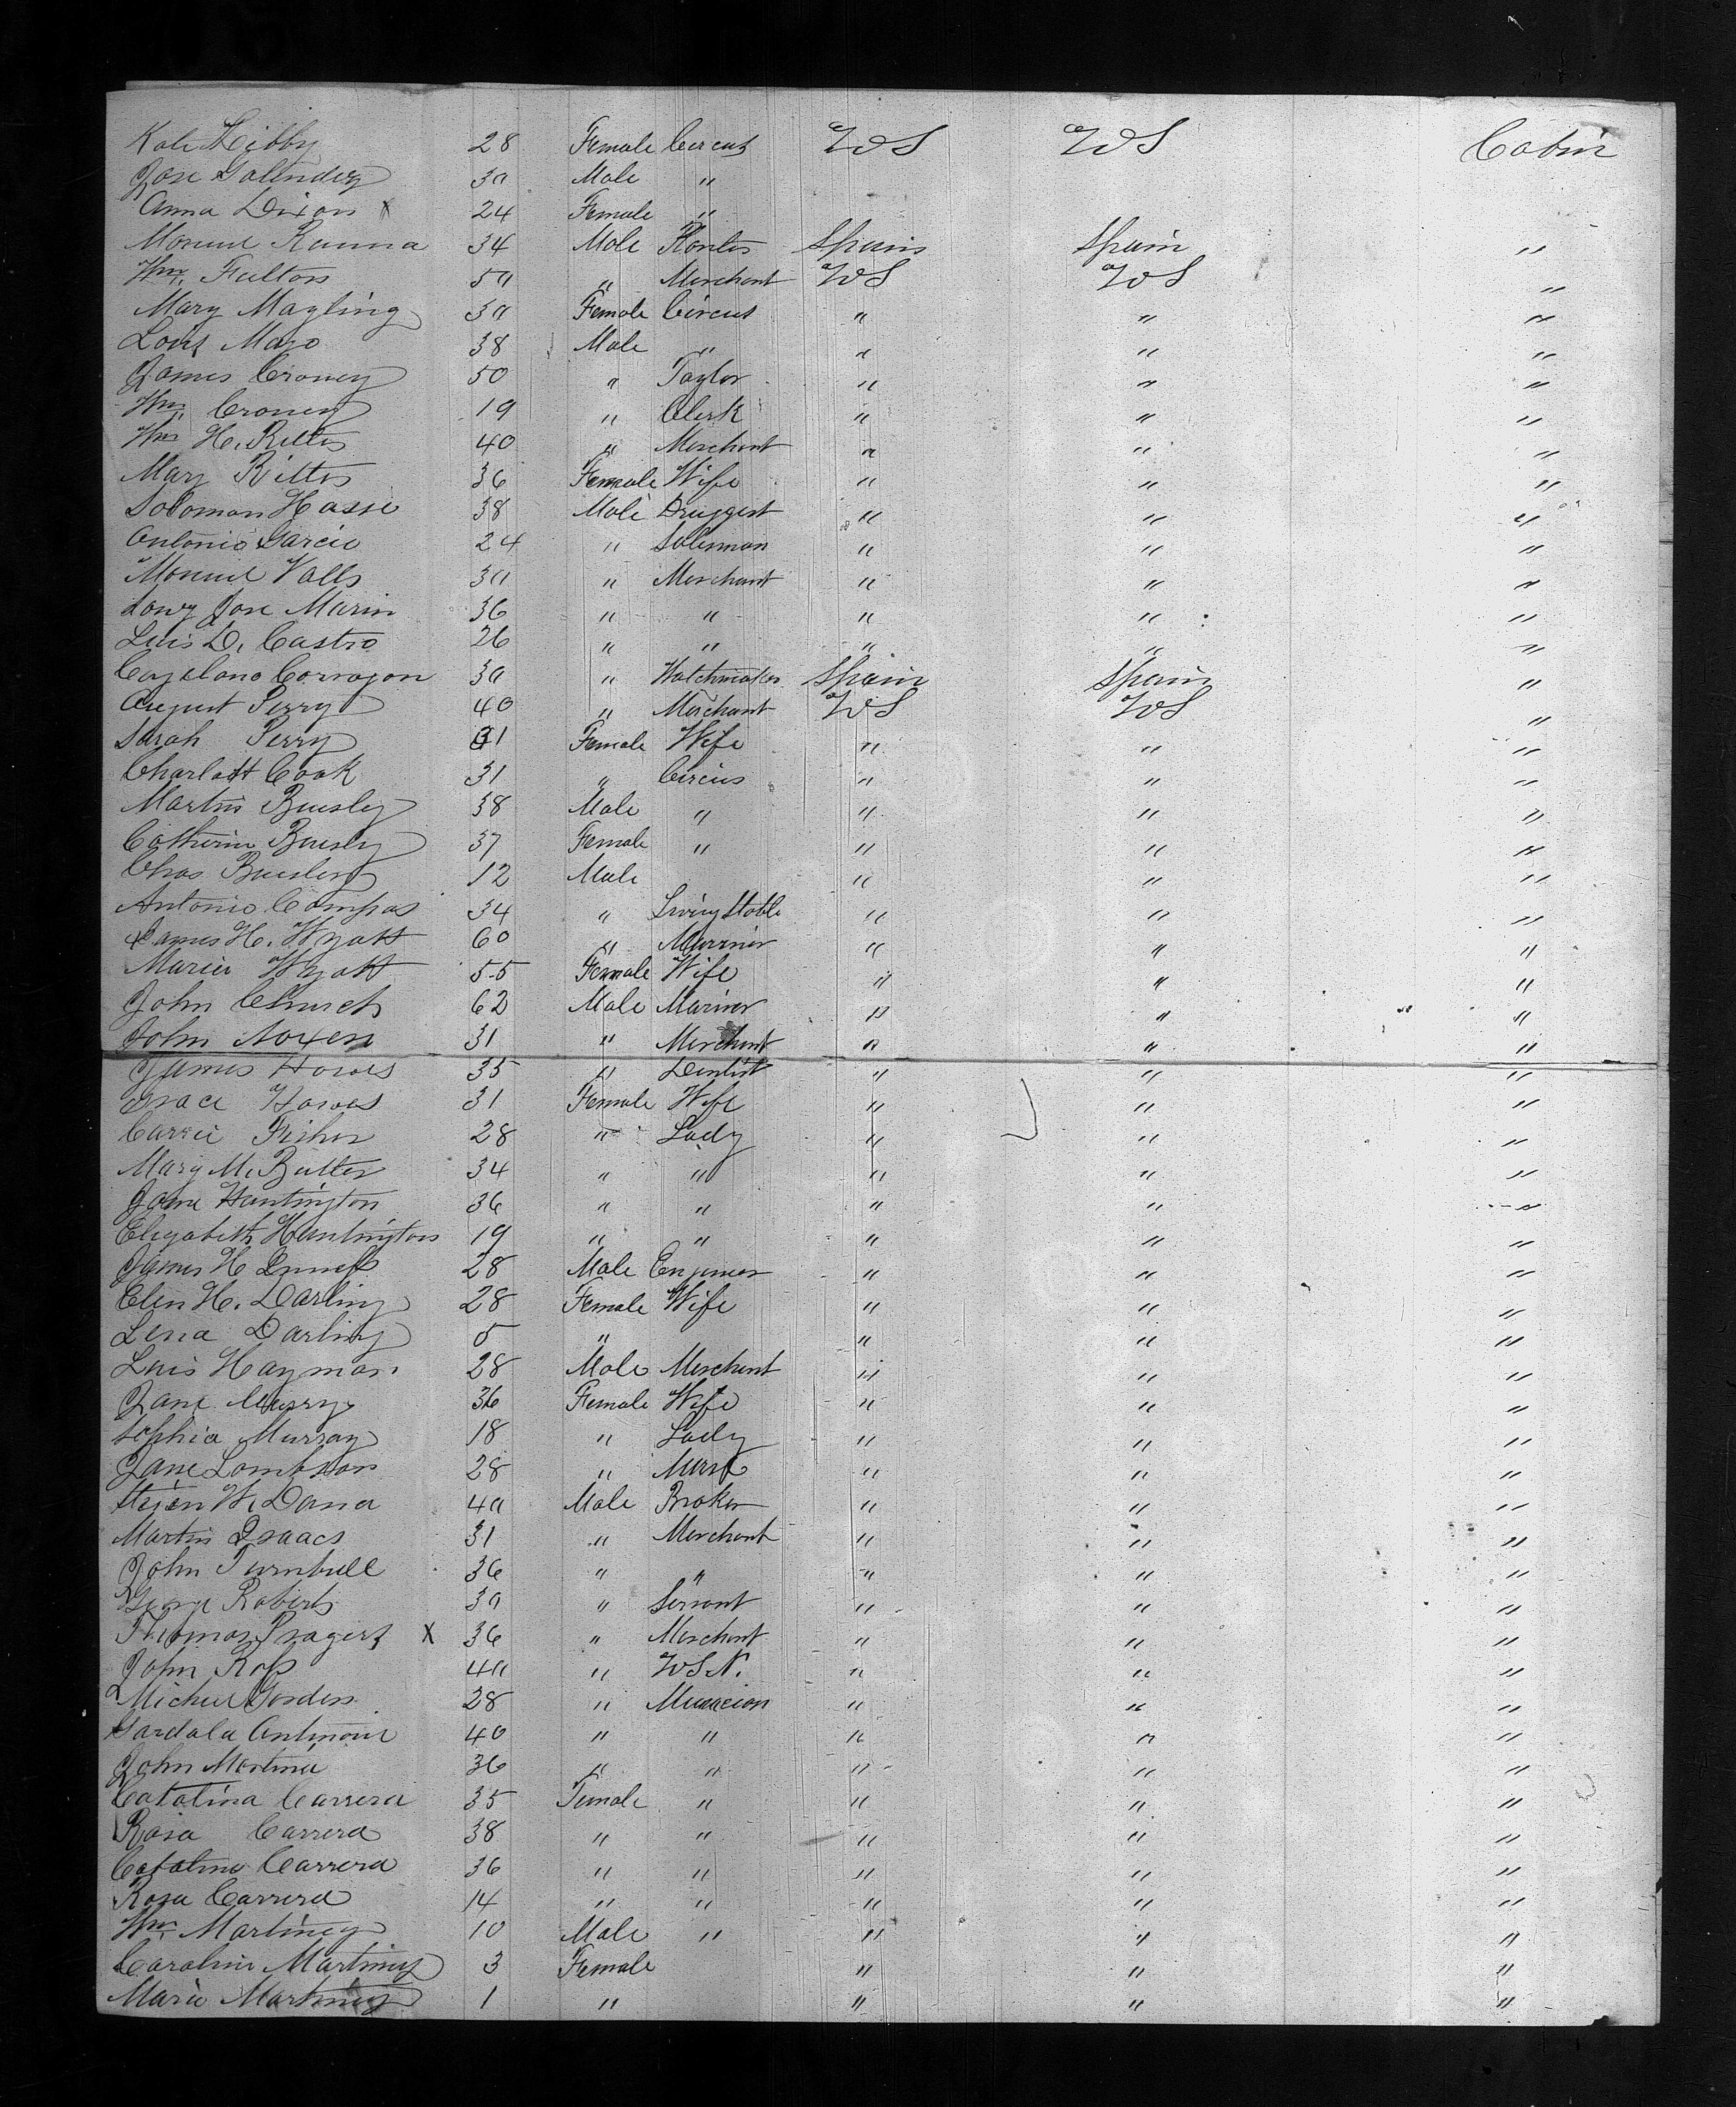 Kate Kibby 28 Female Circus US US Cabin
Jose Galindez 30 Male "
Anna Dixon x 24 Female "
Manuel 34 Male Spain Spain "
Wm. Fulton 50 " Merchant US US "
Mary Mayling 30 Female Circus " " "
Louis Mayo 38 Male " " " "
James Croney 50 " Taylor " " "
Wm. Croney 19 " Clerk " " "
Wm H. Ritter 40 " Merchant " " "
Mary Ritter 36 Female Wife " " "
Solomon Hasse 38 Male Druggest " " "
Antonio Garcia 24 " Salesman " " "
Manuel Valls 30 " Merchant " " "
Jose Marin 36 " " " " "
Luis D. Castro 26 " " " " "
Cayetano Corragon 30 " Watchmaker Spain Spain "
August Perry 40 " Merchant US US "
Sarah Perry 31 Female Wife " " "
Charlott Cook 31 " Circus " " "
Martin Buesley 38 Male " " " "
Catherin Buesley 37 Female " " " "
Chas Buesley 12 Male " " "
Antonio Campas 34 " Livery Stable " " "
James H. Wyatt 60 " Marrnir " " "
Maria Wyatt 55 Female Wife " " "
John Church 62 Male Mariner " " "
John Noxen 31 " Merchant " " "
James Howes 35 " Dentist " " "
Grace Howes 31 Female Wife " " "
Carrie Fisher 28 " Lady " " "
Mary M. Butler 34 " " " " "
Jane Huntington 36 " " " " "
Elizabeth Huntington 19 " " " " "
James H 28 Male Engineer " " "
Elen H. Darling 28 Female Wife " " "
Lena Darling 5 " " " "
Luis Hayman 28 Male Merchant " " "
Jane Murry 36 Female Wife " " "
Sophia Murray 18 " Lady " " "
Jane Lambson 28 " Nurse " " "
W. Dana 40 Male Broker " " "
Martin Isaacs 31 " Merchant " " "
John Turnbull 36 " " " " "
George Roberts 30 " Servant " " "
Thomas Pragers X 36 " Merchant " " "
John Ross 40 " USN. " " "
Michel Gorden 28 " Musacion " " "
Gardala Antinori 40 " " " " "
John Martina 36 " " " " "
Catalina Carrera 35 Female " " " "
Rosa Carrera 38 " " " " "
Catalina Carrera 36 " " " " "
Rosa Carrera 14 " " " " "
Wm. Martinez 10 Male " " " "
Carolin Martinez 3 Female " " "
Maria Martinez 1 " " " "